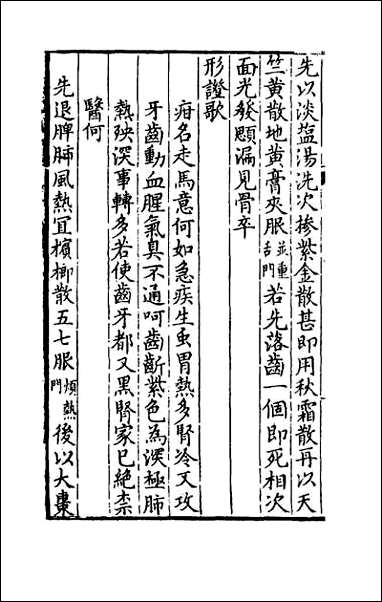 先以淡塩湯洗次摻紫金散甚即用秋霜散再以天
竺黃散地黃膏夾服並重舌門若先落齒一個即死相次
面光發顋漏見骨卒
形證歌
疳名走馬意何如急疾生虫胃熱多腎冷又攻
牙齒動血腥氣臭不通呵齒齗紫色為深極肺
熱殃深事轉多若使齒牙都又黑腎家已絶柰
醫何
先退脾肺風熱宜檳榔散五七服煩熱門後以大棗